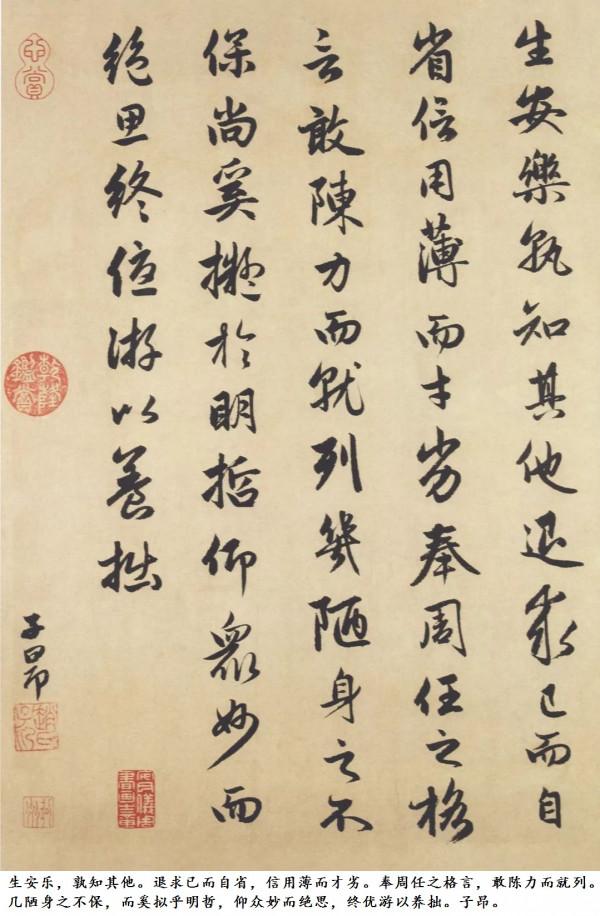 生安樂孰知其他退求己而自
省信用薄而才劣奉周任之格
言敢陳力而就列幾陋身之不
保尚奚擬於明哲仰眾妙而
絕思終優游以養拙
子昂
乾隆鑑賞
趙氏子昂
安儀周書畫之章
生安乐，孰知其他。退求已而自省，信用薄而才劣。奉周任之格言，敢陈力而就列。
几陋身之不保，而奚拟乎明哲，仰众妙而绝思，终优游以养拙。子昂。